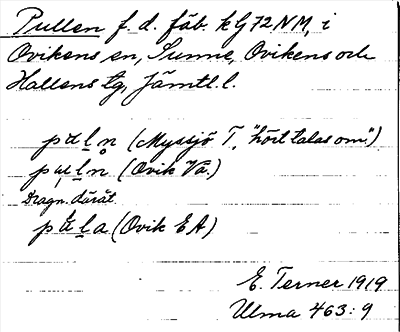 Pullen f. d. fäb. kG72NM, i
Ovikens sn, Sunne, Ovikens och
Hallens tg, Jämtl. l.
(Myssjö T, "hört talas om")
(Ovik Vå.)
Dragn. däråt
(Ovik EA)
E. Terner 1919
Ulma 463:9